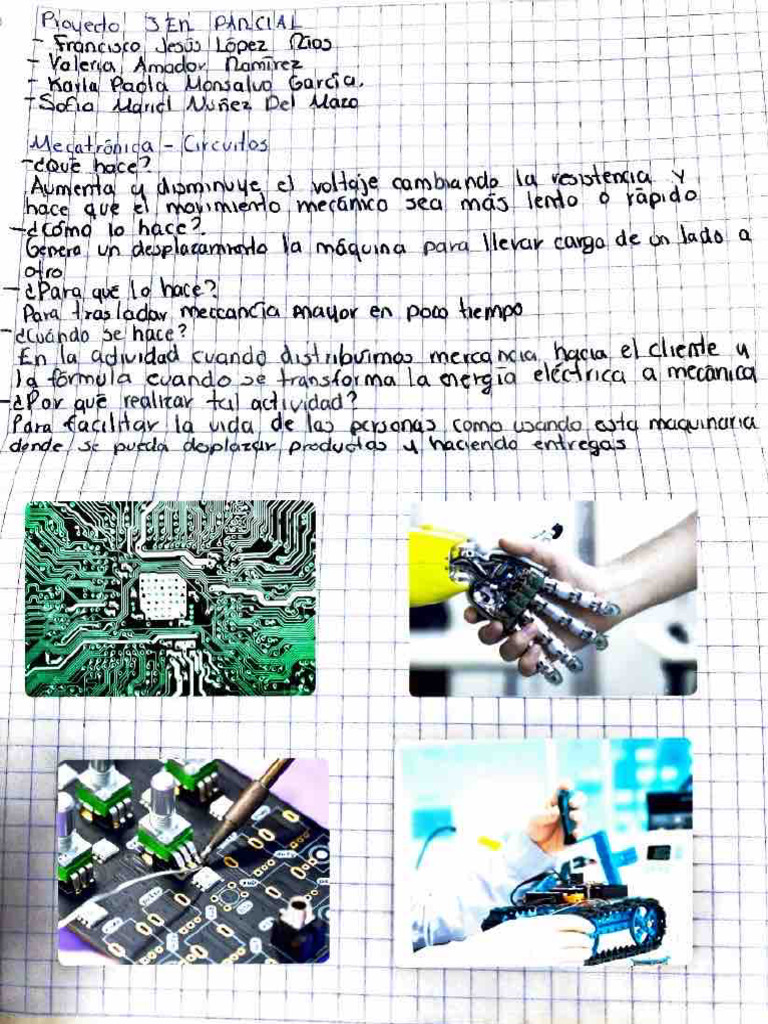 Proyecto 3ER PARCIAL
- Francisco Jesús López Rios
- Valeria Amador Ramírez
- Karla Paola Monsalvo García.
- Sofia Mariel Nuñez Del Mazo
Mecatrónica - Circuitos
- ¿Qué hace?
Aumenta y disminuye el voltaje cambiando la resistencia y
hace que el movimiento mecánico sea más lento o rápido
- ¿Cómo lo hace?
Genera un desplazamiento la máquina para llevar carga de un lado a
otro
- ¿Para qué lo hace?
Para trasladar mercancía mayor en poco tiempo
- ¿Cuándo se hace?
En la actividad cuando distribuimos mercancia hacia el cliente y
la fórmula cuando se transforma la energía eléctrica a mecánica
- ¿Por qué realizar tal actividad?
Para facilitar la vida de las personas como usando esta maquinaria
donde se pueda desplazar productos y haciendo entregas